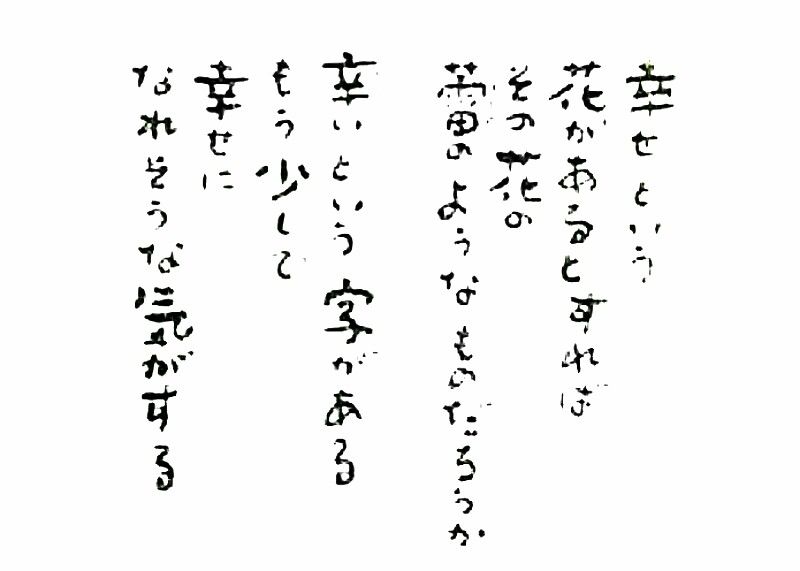 幸せという
花があるとすれば
その花の
蕾のようなものだろうか
辛いという字がある
もう少しで
幸せに
なれそうな気がする